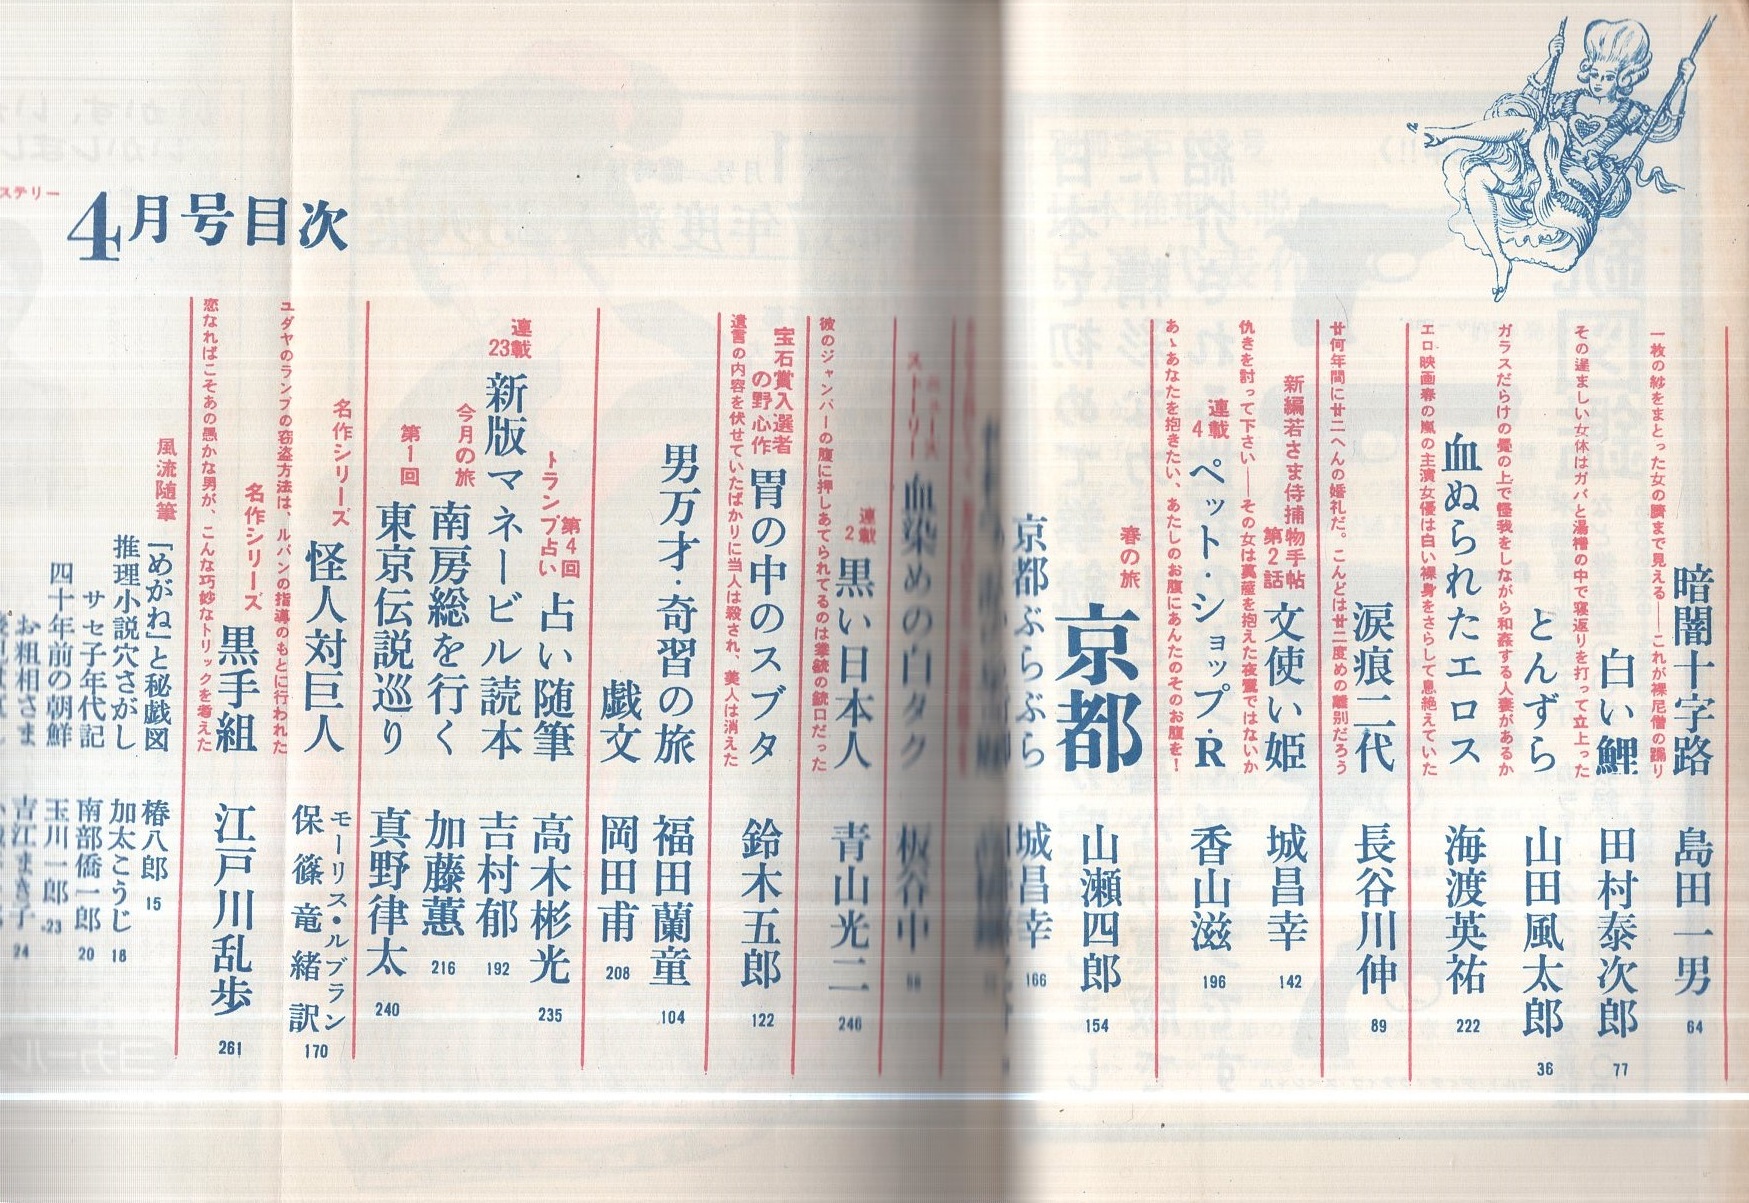 4月号目次
一枚の紗をまとった女の臍まで見える――これが裸尼僧の踊り
暗闇十字路
島田一男
64
その逞ましい女体はガバと湯槽の中で寝返りを打って立上った
白い鯉
田村泰次郎
77
ガラスだらけの畳の上で怪我をしながら和姦する人妻があるか
とんずら
山田風太郎
36
エロ映画春の嵐の主演女優は白い裸身をさらして息絶えていた
血ぬられたエロス
海渡英祐
222
廿何年間に廿二へんの婚礼だ。こんどは廿二度めの離別だろう
涙痕二代
長谷川伸
89
新編若さま侍捕物手帖
第2話
文使い姫
城昌幸
142
仇きを討って下さい――その女は菰を抱えた夜鷹ではないか
連載4
ペット・ショップ・R
香山滋
196
あゝあなたを抱きたい、あたしのお腹にあんたのそのお腹を!
春の旅
京都
山瀬四郎
154
京都ぶらぶら
城昌幸
166
ストーリー
血染めの白タク
板谷中
連載2
黒い日本人
青山光二
246
彼のジャンパーの腹に押しあてられてるのは業銃の銃口だった
宝石賞入選者
の野心作
胃の中のスブタ
鈴木五郎
122
遺言の内容を伏せていたばかりに当人は殺され、美人は消えた
男万才・奇習の旅
福田蘭童
104
戯文
岡田甫
208
トランプ占い
第4回
占い随筆
高木彬光
235
連載23
新版マネービル読本
吉村郁
192
今月の旅
南房総を行く
加藤薫
216
第1回
東京伝説巡り
真野律太
240
名作シリーズ
怪人対巨人
モーリス・ルブラン
保篠竜緒訳
170
ユダヤのランプの窃盗方法は、ルパンの指導のもとに行われた
名作シリーズ
黒手組
江戸川乱歩
261
恋なればこそあの愚かな男が、こんな巧妙なトリックを考えた
風流随筆
「めがね」と秘戯図
椿八郎
15
推理小説穴さがし
加太こうじ
18
サセ子年代記
南部僑一郎
20
四十年前の朝鮮
玉川一郎
23
お粗相さま
吉江まき子
24
ステリー